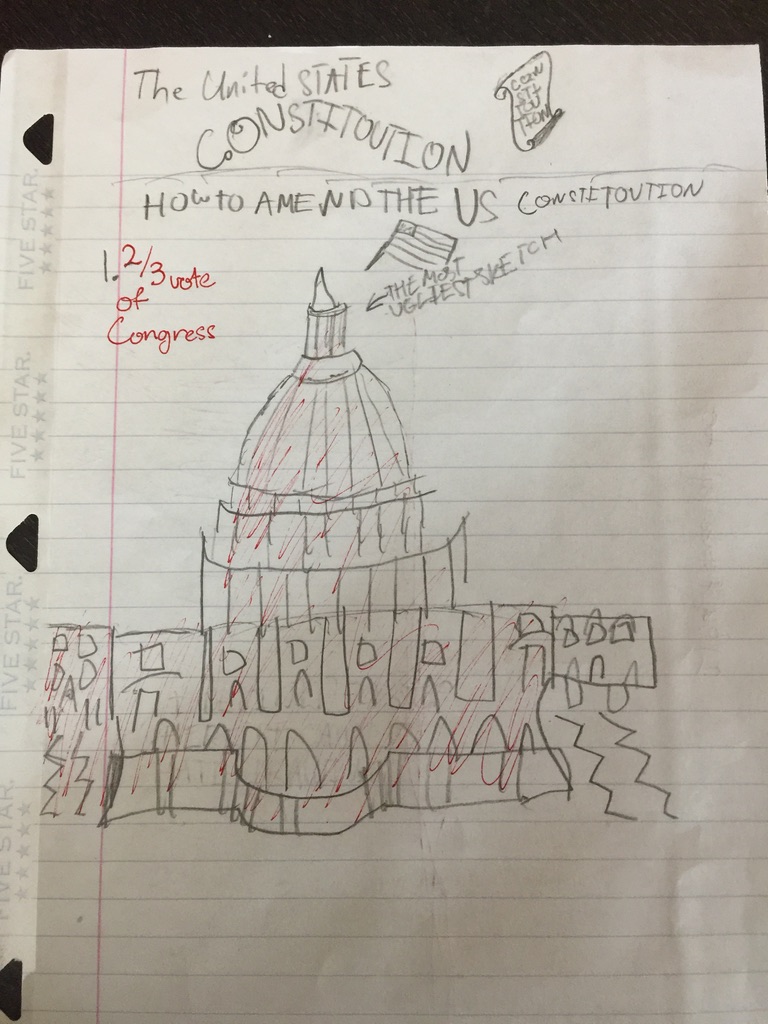 The United STATES
CONSTITOUTION
CON
STI
TOU
TION
HOW TO AMEND THE US CONSTITOUTION
1. 2/3 vote
of
Congress
THE MOST
UGLIEST SKETCH
FIVE STAR.
FIVE STAR.
FIVE STAR.
FIVE STAR.